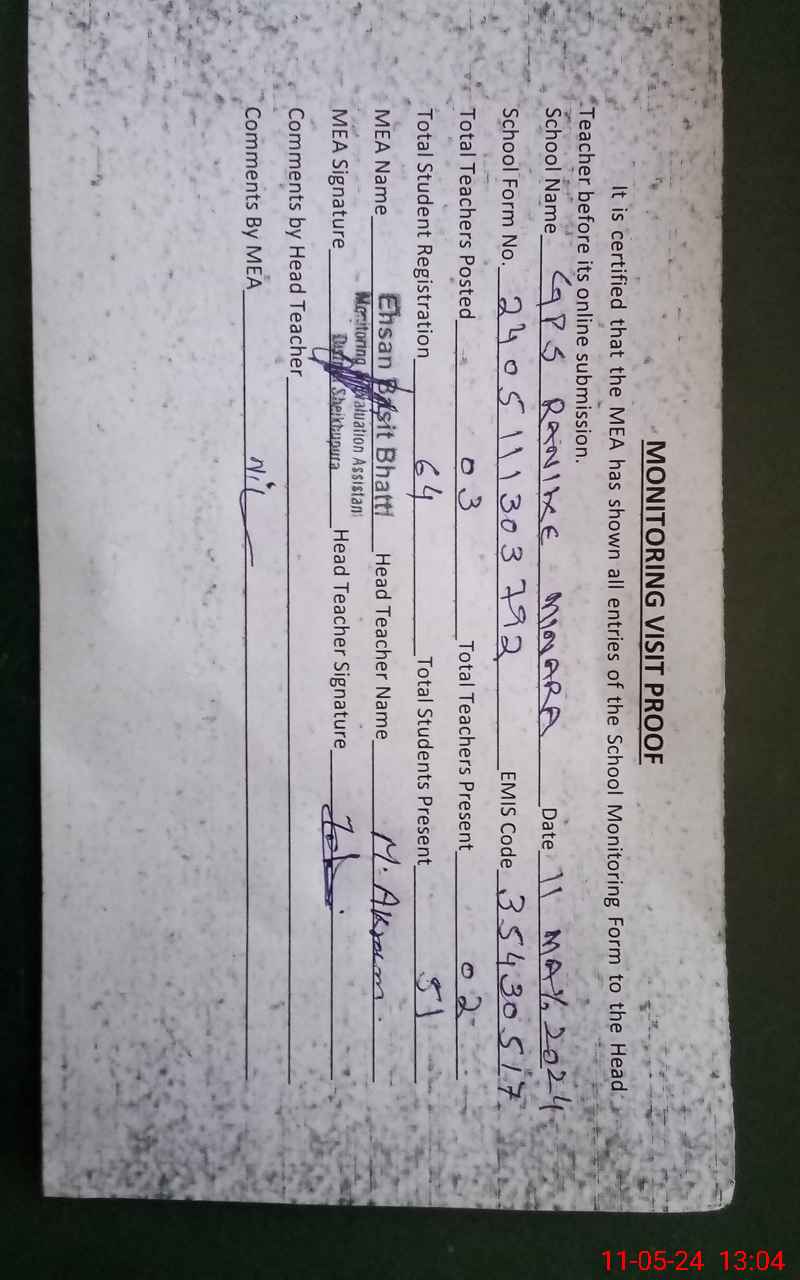 MONITORING VISIT PROOF
It is certified that the MEA has shown all entries of the School Monitoring Form to the Head
Teacher before its online submission.
School Name GPS RANIKE MINARA Date 11 MAY, 2024
School Form No. 2405111303792 EMIS Code 35430517
Total Teachers Posted 03 Total Teachers Present 02
Total Student Registration 64 Total Students Present 51
MEA Name Ehsan Basit Bhatti Head Teacher Name M. Akram
Monitoring Evaluation Assistant
MEA Signature District Sheikhupura Head Teacher Signature
Comments by Head Teacher
Comments By MEA Nil
11-05-24 13:04